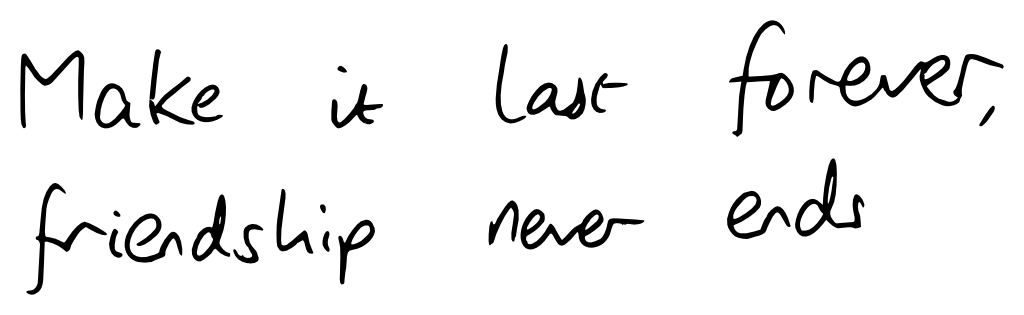 Make it last forever,
friendship never ends